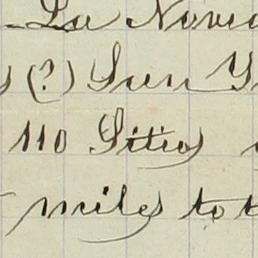 La Nove
(?) Sun Y
110 Sitios
miles to t